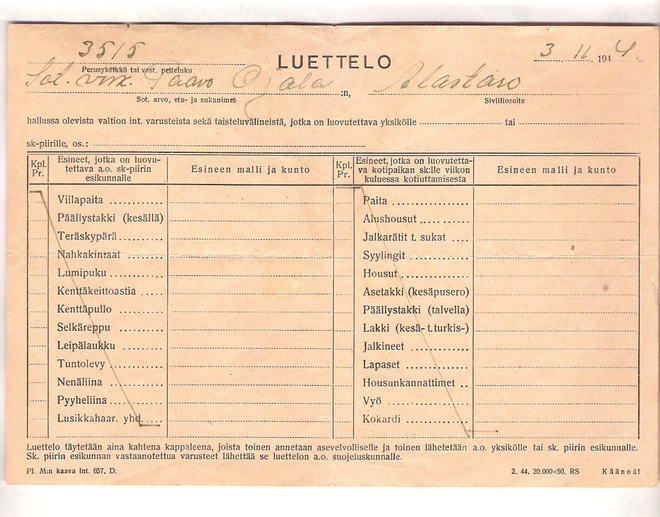 3515 LUETTELO 3. 11. 1944
Perusyksikkö tai vast. peiteluku
Sot. virk. Paavo Ojala :n, Alastaro
Sot. arvo, etu- ja sukunimet Siviiliosoite
hallussa olevista valtion int. varusteista sekä taisteluvälineistä, jotka on luovutettava yksikölle tai
sk-piirille, os.:
Kpl. Pr. Esineet, jotka on luovutettava a.o. sk-piirin esikunnalle Esineen malli ja kunto Kpl. Pr. Esineet, jotka on luovutettava kotipaikan sk:lle viikon kuluessa kotiuttamisesta Esineen malli ja kunto
Villapaita Paita
Päällystakki (kesällä) Alushousut
Teräskypärä Jalkarätit t. sukat
Nahkakintaat Syylingit
Lumipuku Housut
Kenttäkeittoastia Asetakki (kesäpusero)
Kenttäpullo Päällystakki (talvella)
Selkäreppu Lakki (kesä- t. turkis-)
Leipälaukku Jalkineet
Tuntolevy Lapaset
Nenäliina Housunkannattimet
Pyyheliina Vyö
Lusikkahaar. yhd. Kokardi
Luettelo täytetään aina kahtena kappaleena, joista toinen annetaan asevelvolliselle ja toinen lähetetään a.o. yksikölle tai sk. piirin esikunnalle.
Sk. piirin esikunnan vastaanotettua varusteet lähettää se luettelon a.o. suojeluskunnalle.
Pl. M:n kaava Int. 657. D. 2. 44. 20.000×50. RS Käännä!